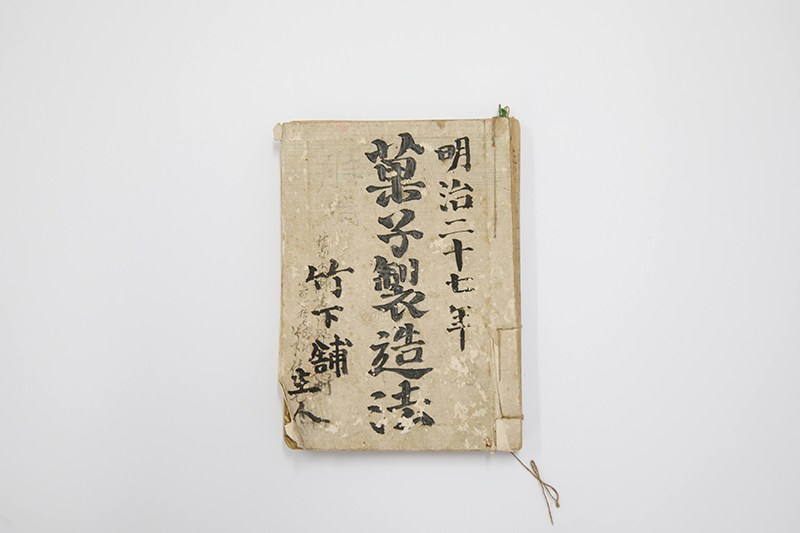 明治二十七年
菓子製造法
竹下舗
主人